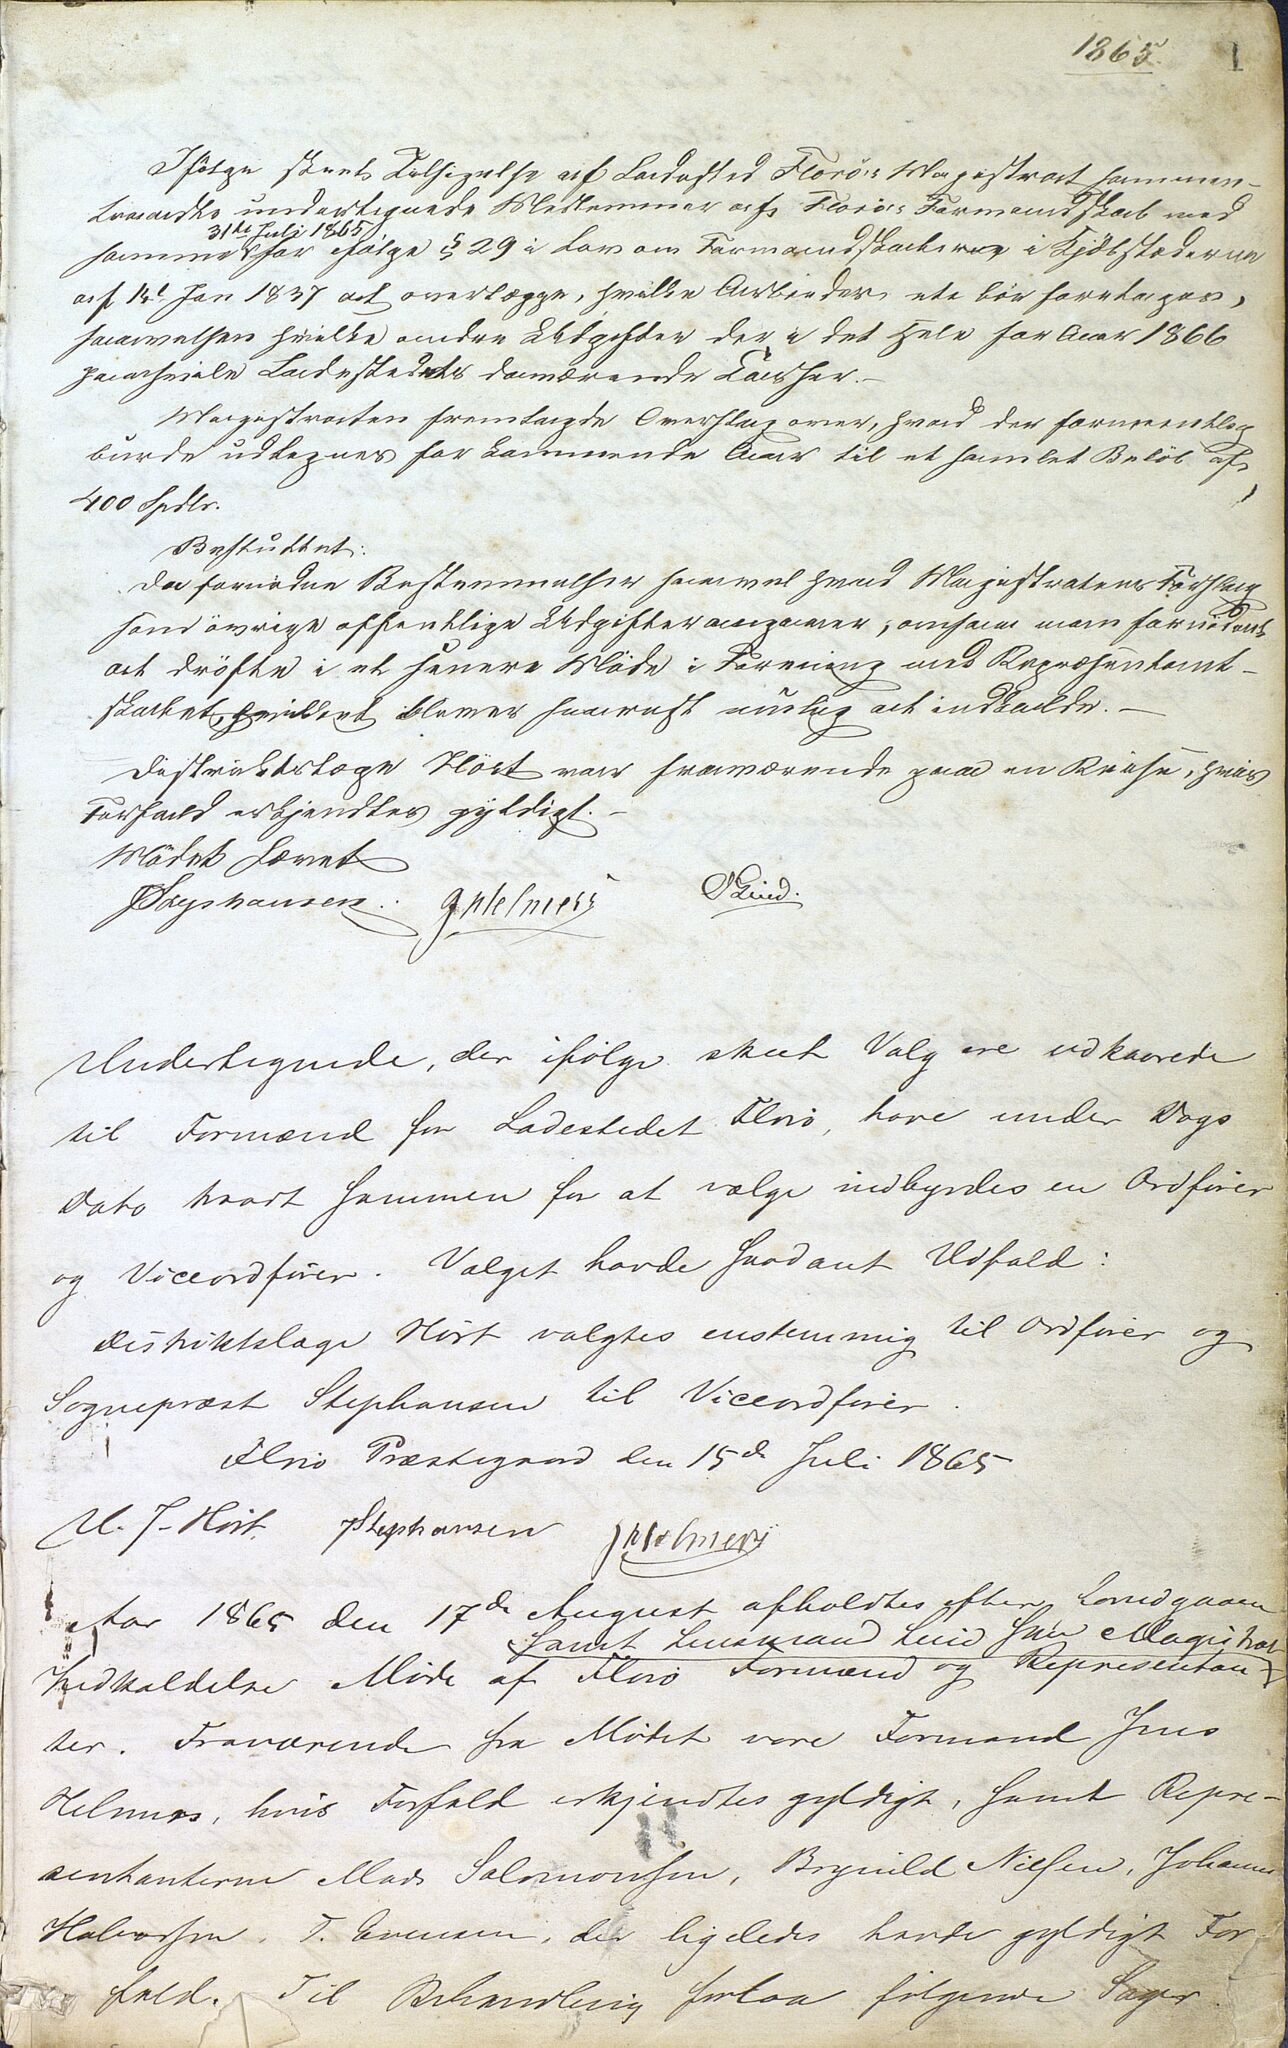 1865. 1
Ifølge skeet Tilsigelse af Ladested Florø's Magistrat sammen-
traadte undertegnede Medlemmer af Florø's Formandskab med
31te Juli 1865
samme for ifølge § 29 i Lov om Formandskaberne i Kjøbstæderne
af 14d Jan 1837 at overlægge, hvilke Arbeider etc bør foretages,
saavelsom hvilke andre Udgifter der i det Hele for Aar 1866
paahvile Ladestedets daværende Casser.-
Magistraten fremlagde Overslag over, hvad der formeentlig
burde udlignes for kommende Aar til et samlet Beløb af
400 Spdlr.
Besluttet:
Da fornødne Bestemmelser saavel hvad Magistratens Forslag
som øvrige offentlige Udgifter angaaer, ansaaes man fornødent
at drøfte i et senere Møde i Forening med Repræsentant-
skabet, hvilket bliver snarest muligt at indkalde. -
Distriktslæge Høst var fraværende paa en Reise, hvis
Forfald erkjendtes gyldigt. -
Mødet hævet
JStephansen. JHelmers Lind.
Undertegnede, der ifølge skeet Valg ere udkaarede
til Formænd for Ladestedet Florø, have under Dags
Dato traadt sammen for at vælge indbyrdes en Ordfører
og Viceordfører. Valget havde saadant Udfald:
Distriktslæge Høst valgtes enstemmig til Ordfører og
Sognepræst Stephansen til Viceordfører.
Florø Præstegaard den 15de Juli 1865
M. J. Høst. JStephansen JHelmers
Aar 1865 den 17de August afholdtes efter Lovedgaaen
samt Lensmand Lind som Magistrat
Indkaldelse Møde af Florø Formænd og Representan
ter. Fraværende fra Mødet vare Formand Jens
Helmers, hvis Forfald erkjendtes gyldigt, samt Repre-
sentanterne Mads Salomonsen, Brynild Nilsen, Johannes
Halvorsen, T. Evensen, der ligeledes havde gyldigt For
fald. Til Behandling forlaa følgende Sager.